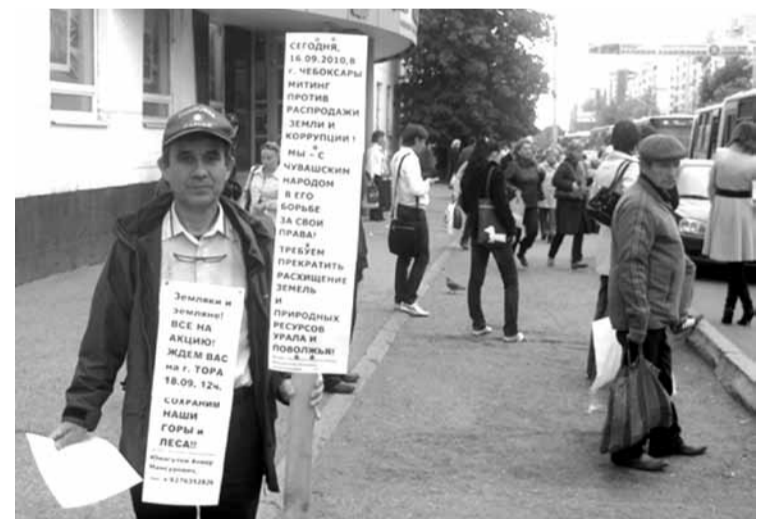 СЕГОДНЯ,
16.09.2010,В
г. ЧЕБОКСАРЫ
МИТИНГ
ПРОТИВ
РАСПРОДАЖИ
ЗЕМЛИ И
КОРРУПЦИИ!
МЫ – С
ЧУВАШСКИМ
НАРОДОМ
В ЕГО
БОРЬБЕ
ЗА СВОИ
ПРАВА!
ТРЕБУЕМ
ПРЕКРАТИТЬ
РАСХИЩЕНИЕ
ЗЕМЕЛЬ
И
ПРИРОДНЫХ
РЕСУРСОВ
УРАЛА И
ПОВОЛЖЬЯ!
Земляки и
земляне!
ВСЕ НА
АКЦИЮ!
ЖДЕМ ВАС
на г. ТОРА
18.09. 12ч.
СОХРАНИМ
НАШИ
ГОРЫ и
ЛЕСА!!
Юмагулов Анвар
Мансурович,